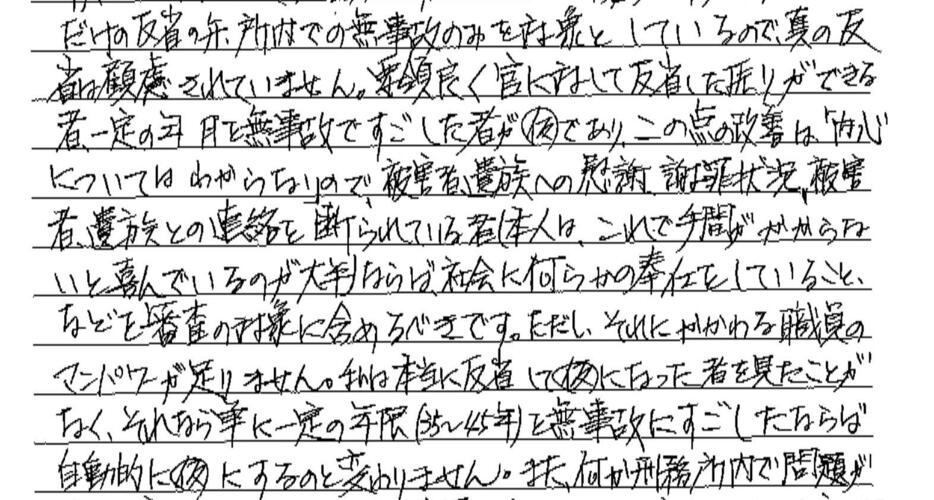 だけの反省の弁、所内での無事故のみを対象としているので、真の反
省は顧慮されていません。要領良く官に対して反省した振りができる
者、一定の年月を無事故ですごした者が㋕であり、この点の改善は、「内心
についてはわからない」ので、被害者、遺族への慰謝、謝罪状況、被害
者、遺族との連絡を断られている者(本人は、これで手間がかからな
いと喜んでいるのが大半)ならば、社会に何らかの奉仕をしていること、
などを審査の対象に含めるべきです。ただし、それにかかわる職員の
マンパワーが足りません。私は本当に反省して になった者を見たことが
なく、それなら単に一定の年限(35~45年)を無事故にすごしたならば
自動的に にするのと変わりません。また、何か刑務所内で問題が